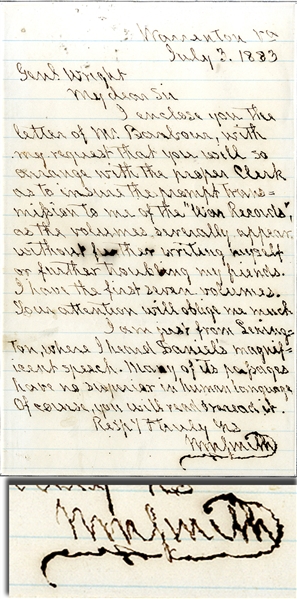 Warrenton Va
July 3. 1883
Genl Wright
My dear Sir
I enclose you the
letter of Mr Barbour, with
my request that you will so
arrange with the proper Clerk
as to insure the prompt trans=
mission to me of the "War Records",
as the volumes severally appear
without further writing myself
or further troubling my friends.
I have the first seven volumes.
Your attention will oblige me much
I am just from Lexing=
ton, where I heard Daniel's magnif=
icent speech. Many of its passages
have no superior in human language
Of course, you will read it.
Respy & truly Yrs
Wm Smith
Wm Smith